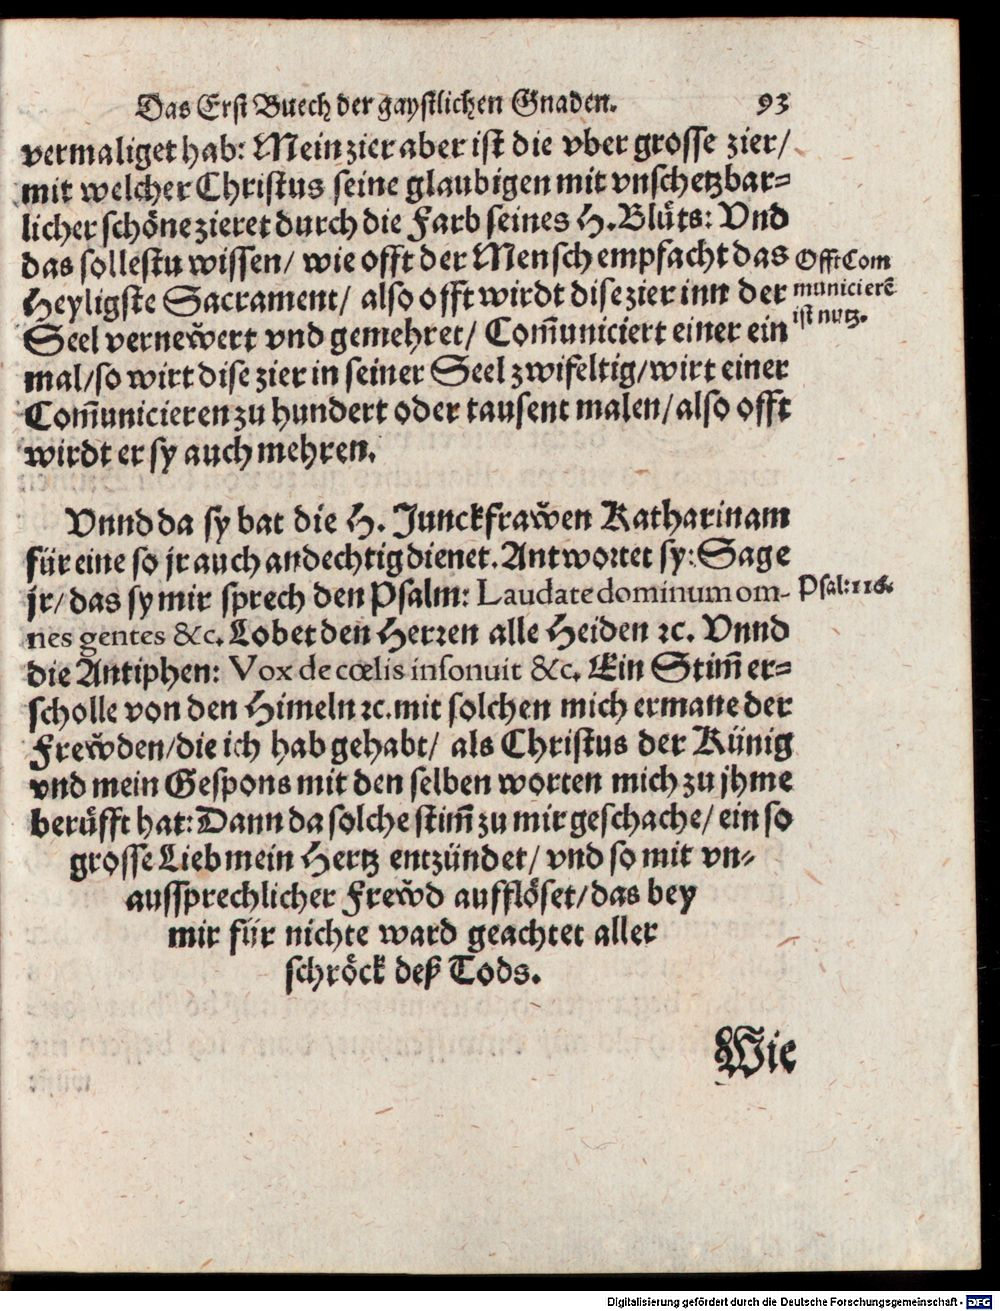 Das Erst Buech der gaystlichen Gnaden. 93
vermaliget hab: Mein zier aber ist die vber grosse zier/
mit welcher Christus seine glaubigen mit vnschetzbar=
licher schöne zieret durch die Farb seines H. Blůts: Vnd
das sollestu wissen/ wie offt der Mensch empfacht das
Heyligste Sacrament/ also offt wirdt dise zier inn der
Seel vernewert vnd gemehret/ Com̄uniciert einer ein
mal/ so wirt dise zier in seiner Seel zwifeltig/ wirt einer
Com̄unicieren zu hundert oder tausent malen/ also offt
wirdt er sy auch mehren.
Offt Com
municierē
ist nutz.
Vnnd da sy bat die H. Junckfrawen Katharinam
für eine so jr auch andechtig dienet. Antwortet sy: Sage
jr/ das sy mir sprech den Psalm: Laudate dominum om-
nes gentes &c. Lobet den Herren alle Heiden ꝛc. Vnnd
die Antiphen: Vox de cœlis insonuit &c. Ein Stim̄ er=
scholle von den Himeln ꝛc. mit solchen mich ermane der
Frewden/ die ich hab gehabt/ als Christus der Künig
vnd mein Gespons mit den selben worten mich zu jhme
berůfft hat: Dann da solche stim̄ zu mir geschache/ ein so
grosse Lieb mein Hertz entzündet/ vnd so mit vn-
aussprechlicher Frewd aufflöset/ das bey
mir für nichte ward geachtet aller
schröck deß Tods.
Psal: 116.
Wie
Digitalisierung gefördert durch die Deutsche Forschungsgemeinschaft - DFG